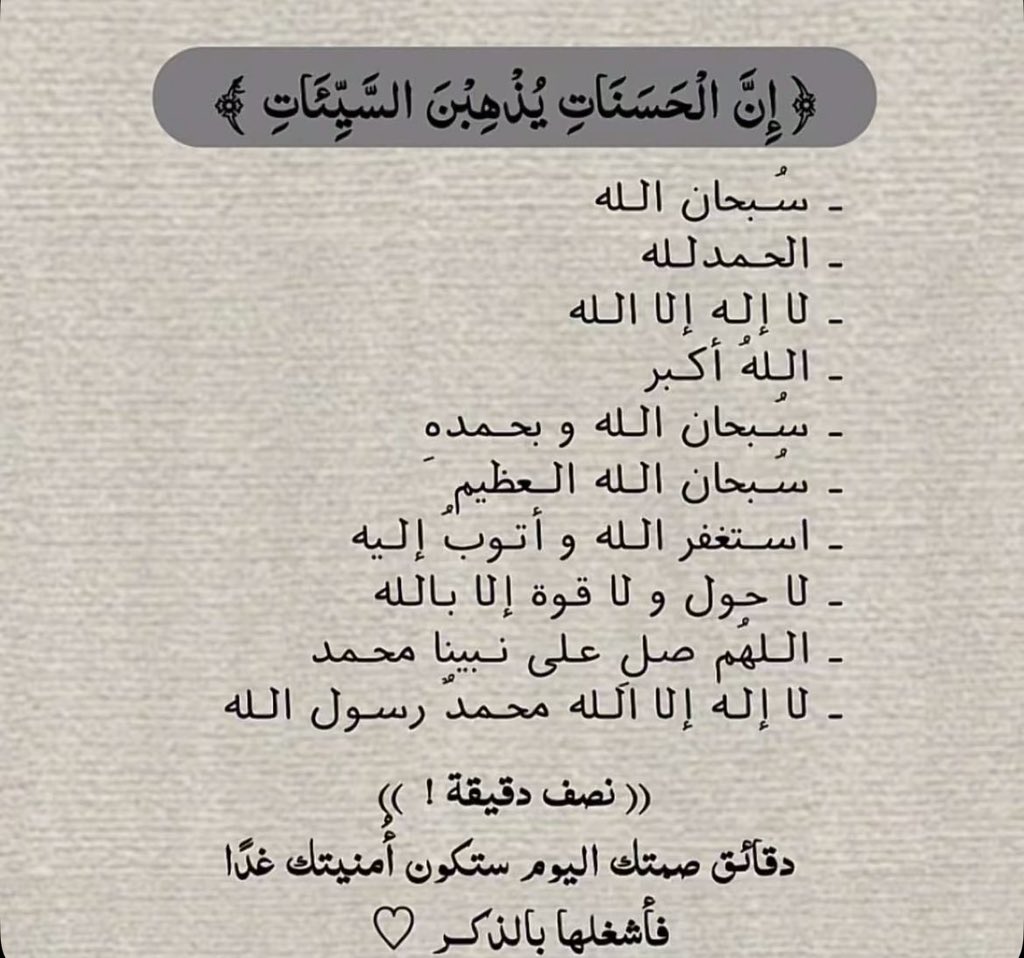 ﴿ إِنَّ الْحَسَنَاتِ يُذْهِبْنَ السَّيِّئَاتِ ﴾
ـ سُـبحان الـله
ـ الحـمدلـله
ـ لا إلـه إلا الـله
ـ الـلهُ أكـبر
ـ سُـبحان الـله و بحـمدهِ
ـ سُـبحان الـله الـعظيمَ
ـ اسـتغفر الـله و أتـوبُ إلـيه
ـ لا حـول و لا قـوة إلا بـالله
ـ الـلهُم صـلِ عـلى نـبينا محـمد
ـ لا إلـه إلا اَلـله محمدٌ رسـول الـله
(( نصف دقيقة ! ))
دقائق صمتك اليوم ستكون أُمنيتك غدًا
فأشغلها بالذكـر ♡